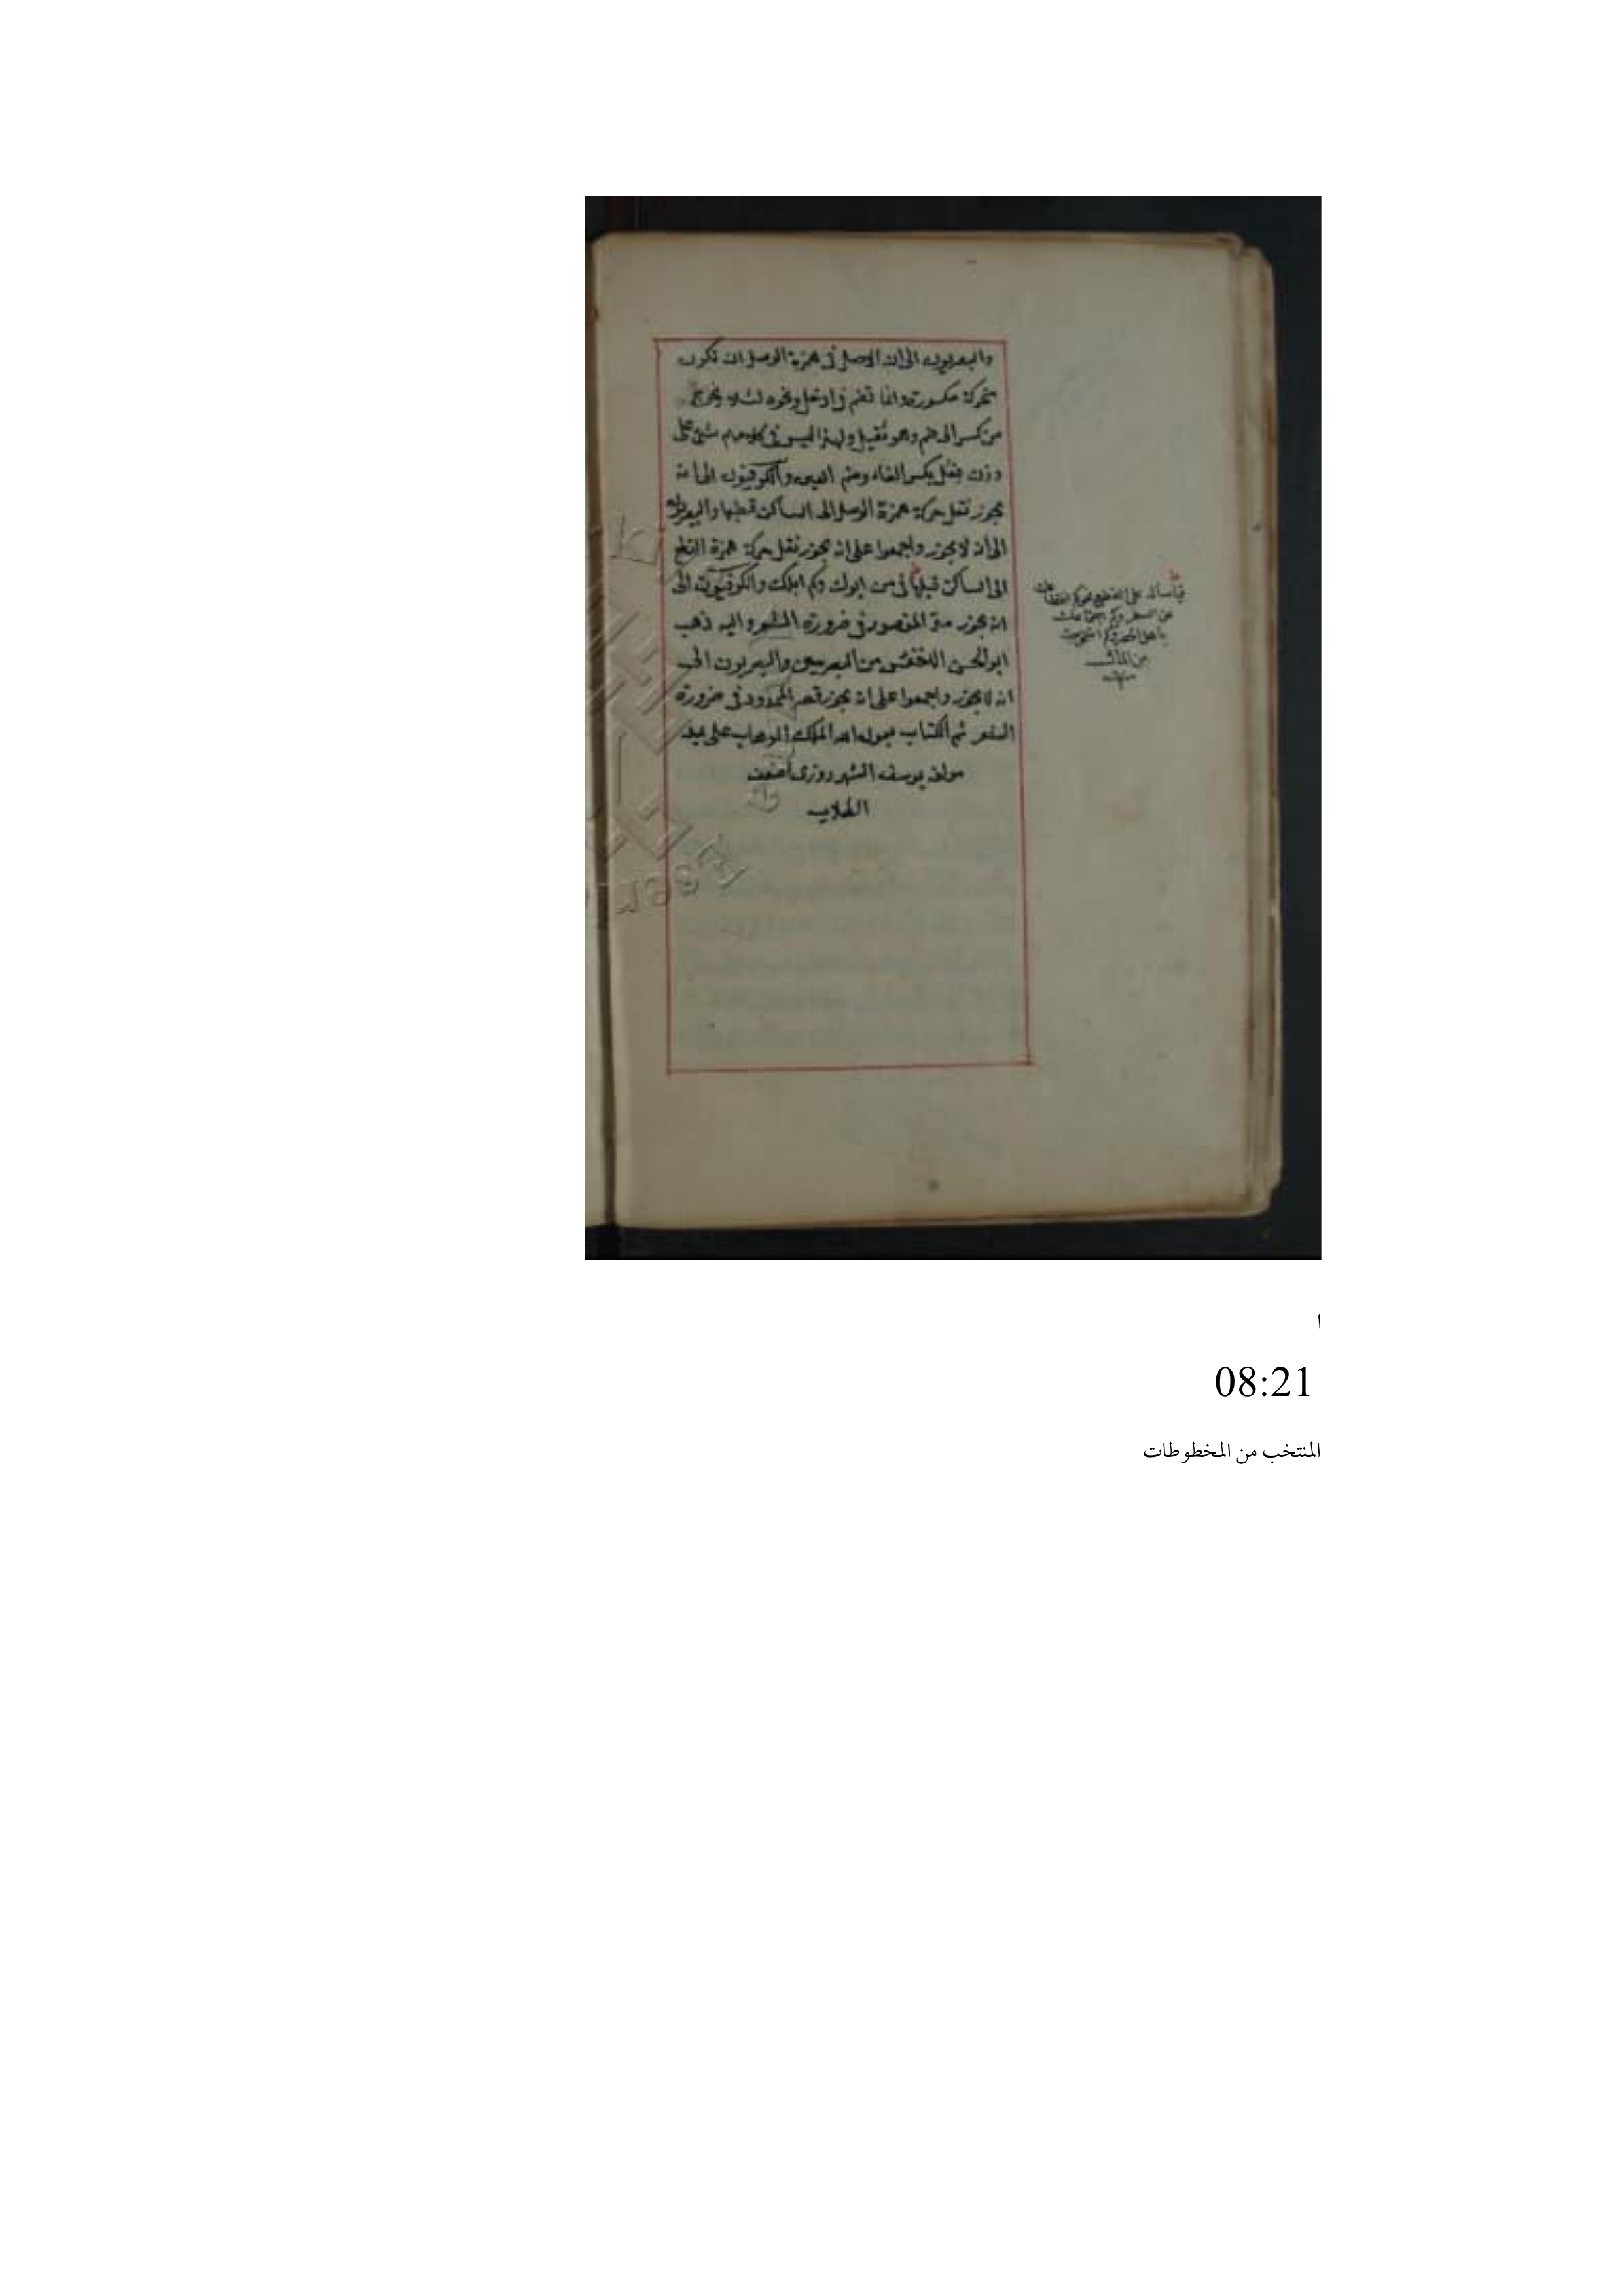 والبصريون الى ان الاصل فى همزة الوصل ان تكون
متحركة مكسورة وانما تضم فى ادخل ونحوه لئلا يخرج
من كسر الى ضم وهو ثقيل ولهذا ليس فى كلامهم شئ على
وزن فعل بكسر الفاء وضم العين والكوفيون الى انه
يجوز نقل حركة همزة الوصل الى الساكن قبلها والبصريون
الى انه لا يجوز واجمعوا على انه يجوز نقل حركة همزة القطع
الى الساكن قبلها فى من ابوك وكم ابلك والكوفيون الى
انه يجوز مد المقصور فى ضرورة الشعر واليه ذهب
ابو الحسن الاخفش من البصريين والبصريون الى
انه لا يجوز واجمعوا على انه يجوز قصر الممدود فى ضرورة
الشعر تم الكتاب بعون الله الملك الوهاب على يد
مولف يوسف الشهرزورى اضعف
الطلاب
قياسا على
من
ا
08:21
المنتخب من المخطوطات